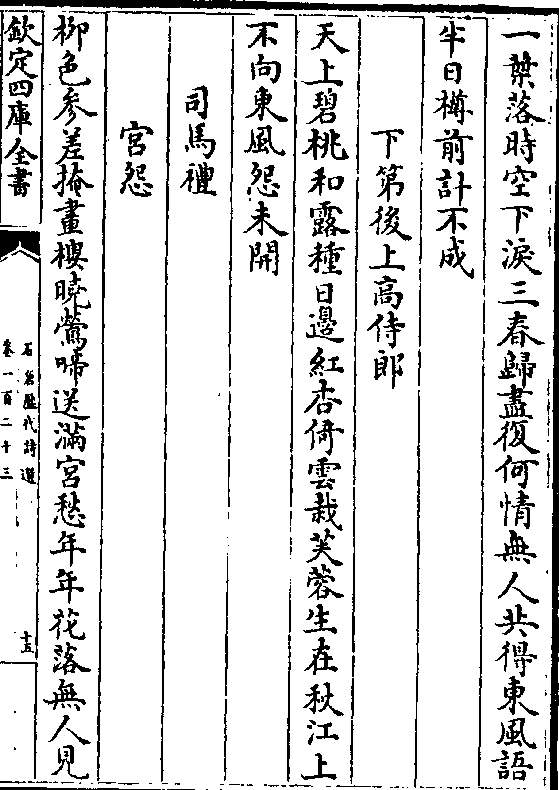 一葉落時空下淚三春歸盡復何情無人共得東風語
半日樽前計不成
下第後上高侍郎
天上碧桃和露種日邊紅杏倚雲栽芙蓉生在秋江上
不向東風怨未開
司馬禮
宮怨
柳色參差掩畫樓曉鶯啼送滿宮愁年年花落無人見
欽定四庫全書
石倉歷代詩選
卷一百二十三
十五